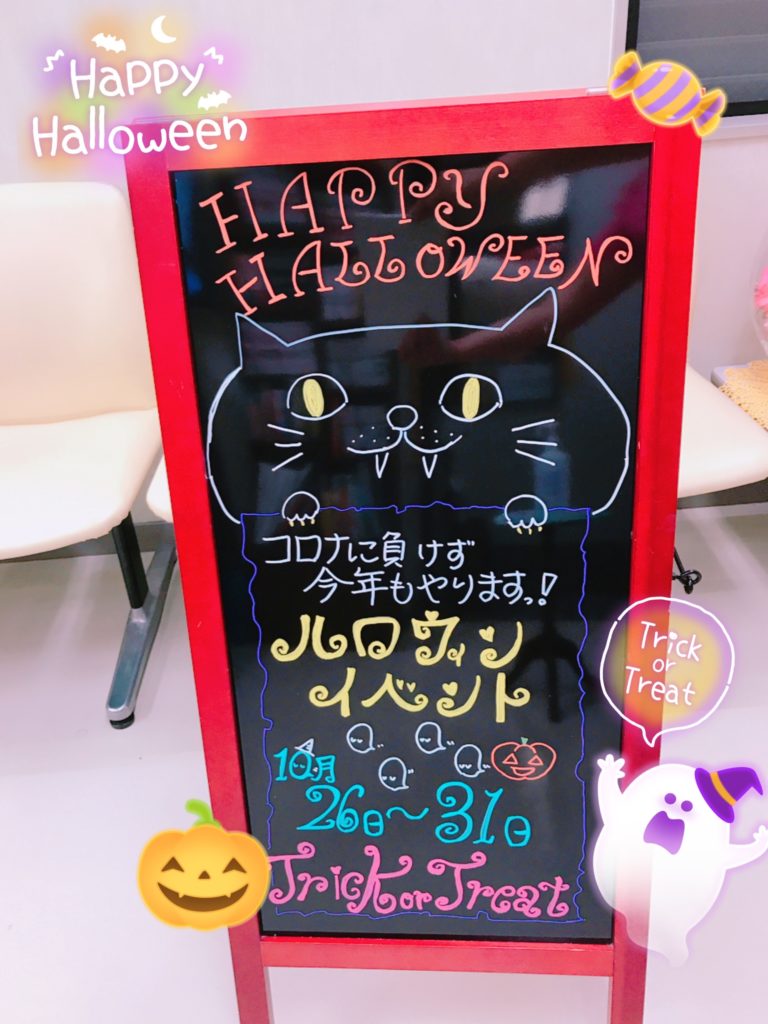 Happy
Halloween
HAPPY
HALLOWEEN
コロナに負けず
今年もやりますっ!
ハロウィン
イベント
10月
26日〜31日
Trick or Treat
Trick
or
Treat